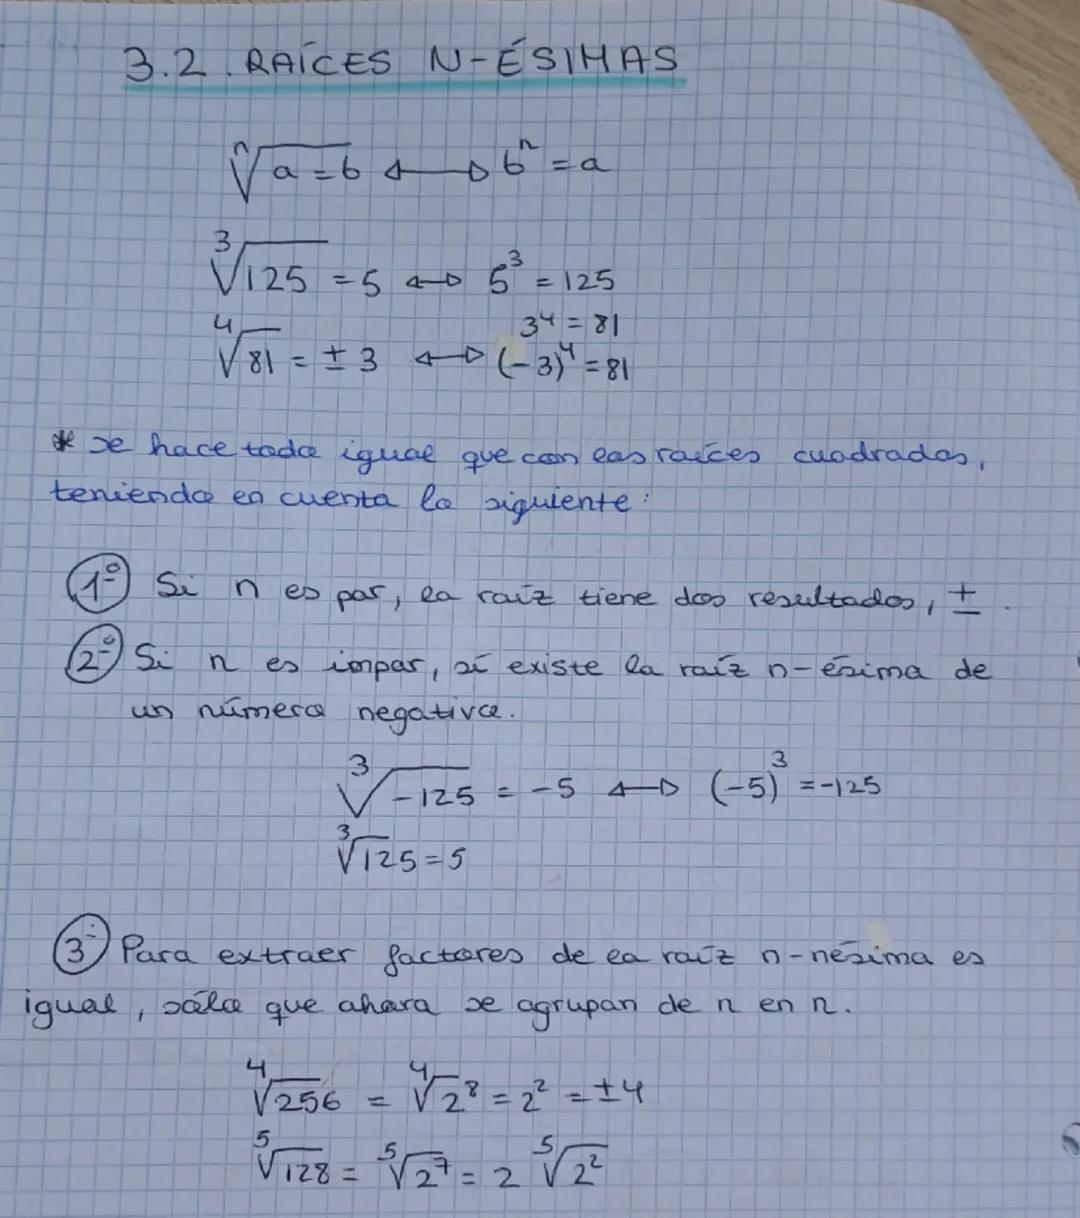 3.2. RAÍCES N-ÉSIMAS
ⁿ√a = b ↔ bⁿ = a
³√125 = 5 ↔ 5³ = 125
3⁴ = 81
⁴√81 = ± 3 ↔ (-3)⁴ = 81
* se hace todo igual que con las raíces cuadradas,
teniendo en cuenta lo siguiente:
1º Si n es par, la raíz tiene dos resultados, ±.
2º Si n es impar, sí existe la raíz n-ésima de
un número negativo.
³√-125 = -5 ↔ (-5)³ = -125
³√125 = 5
3º Para extraer factores de la raíz n-nésima es
igual, sólo que ahora se agrupan de n en n.
⁴√256 = ⁴√2⁸ = 2² = ±4
⁵√128 = ⁵√2⁷ = 2 ⁵√2²